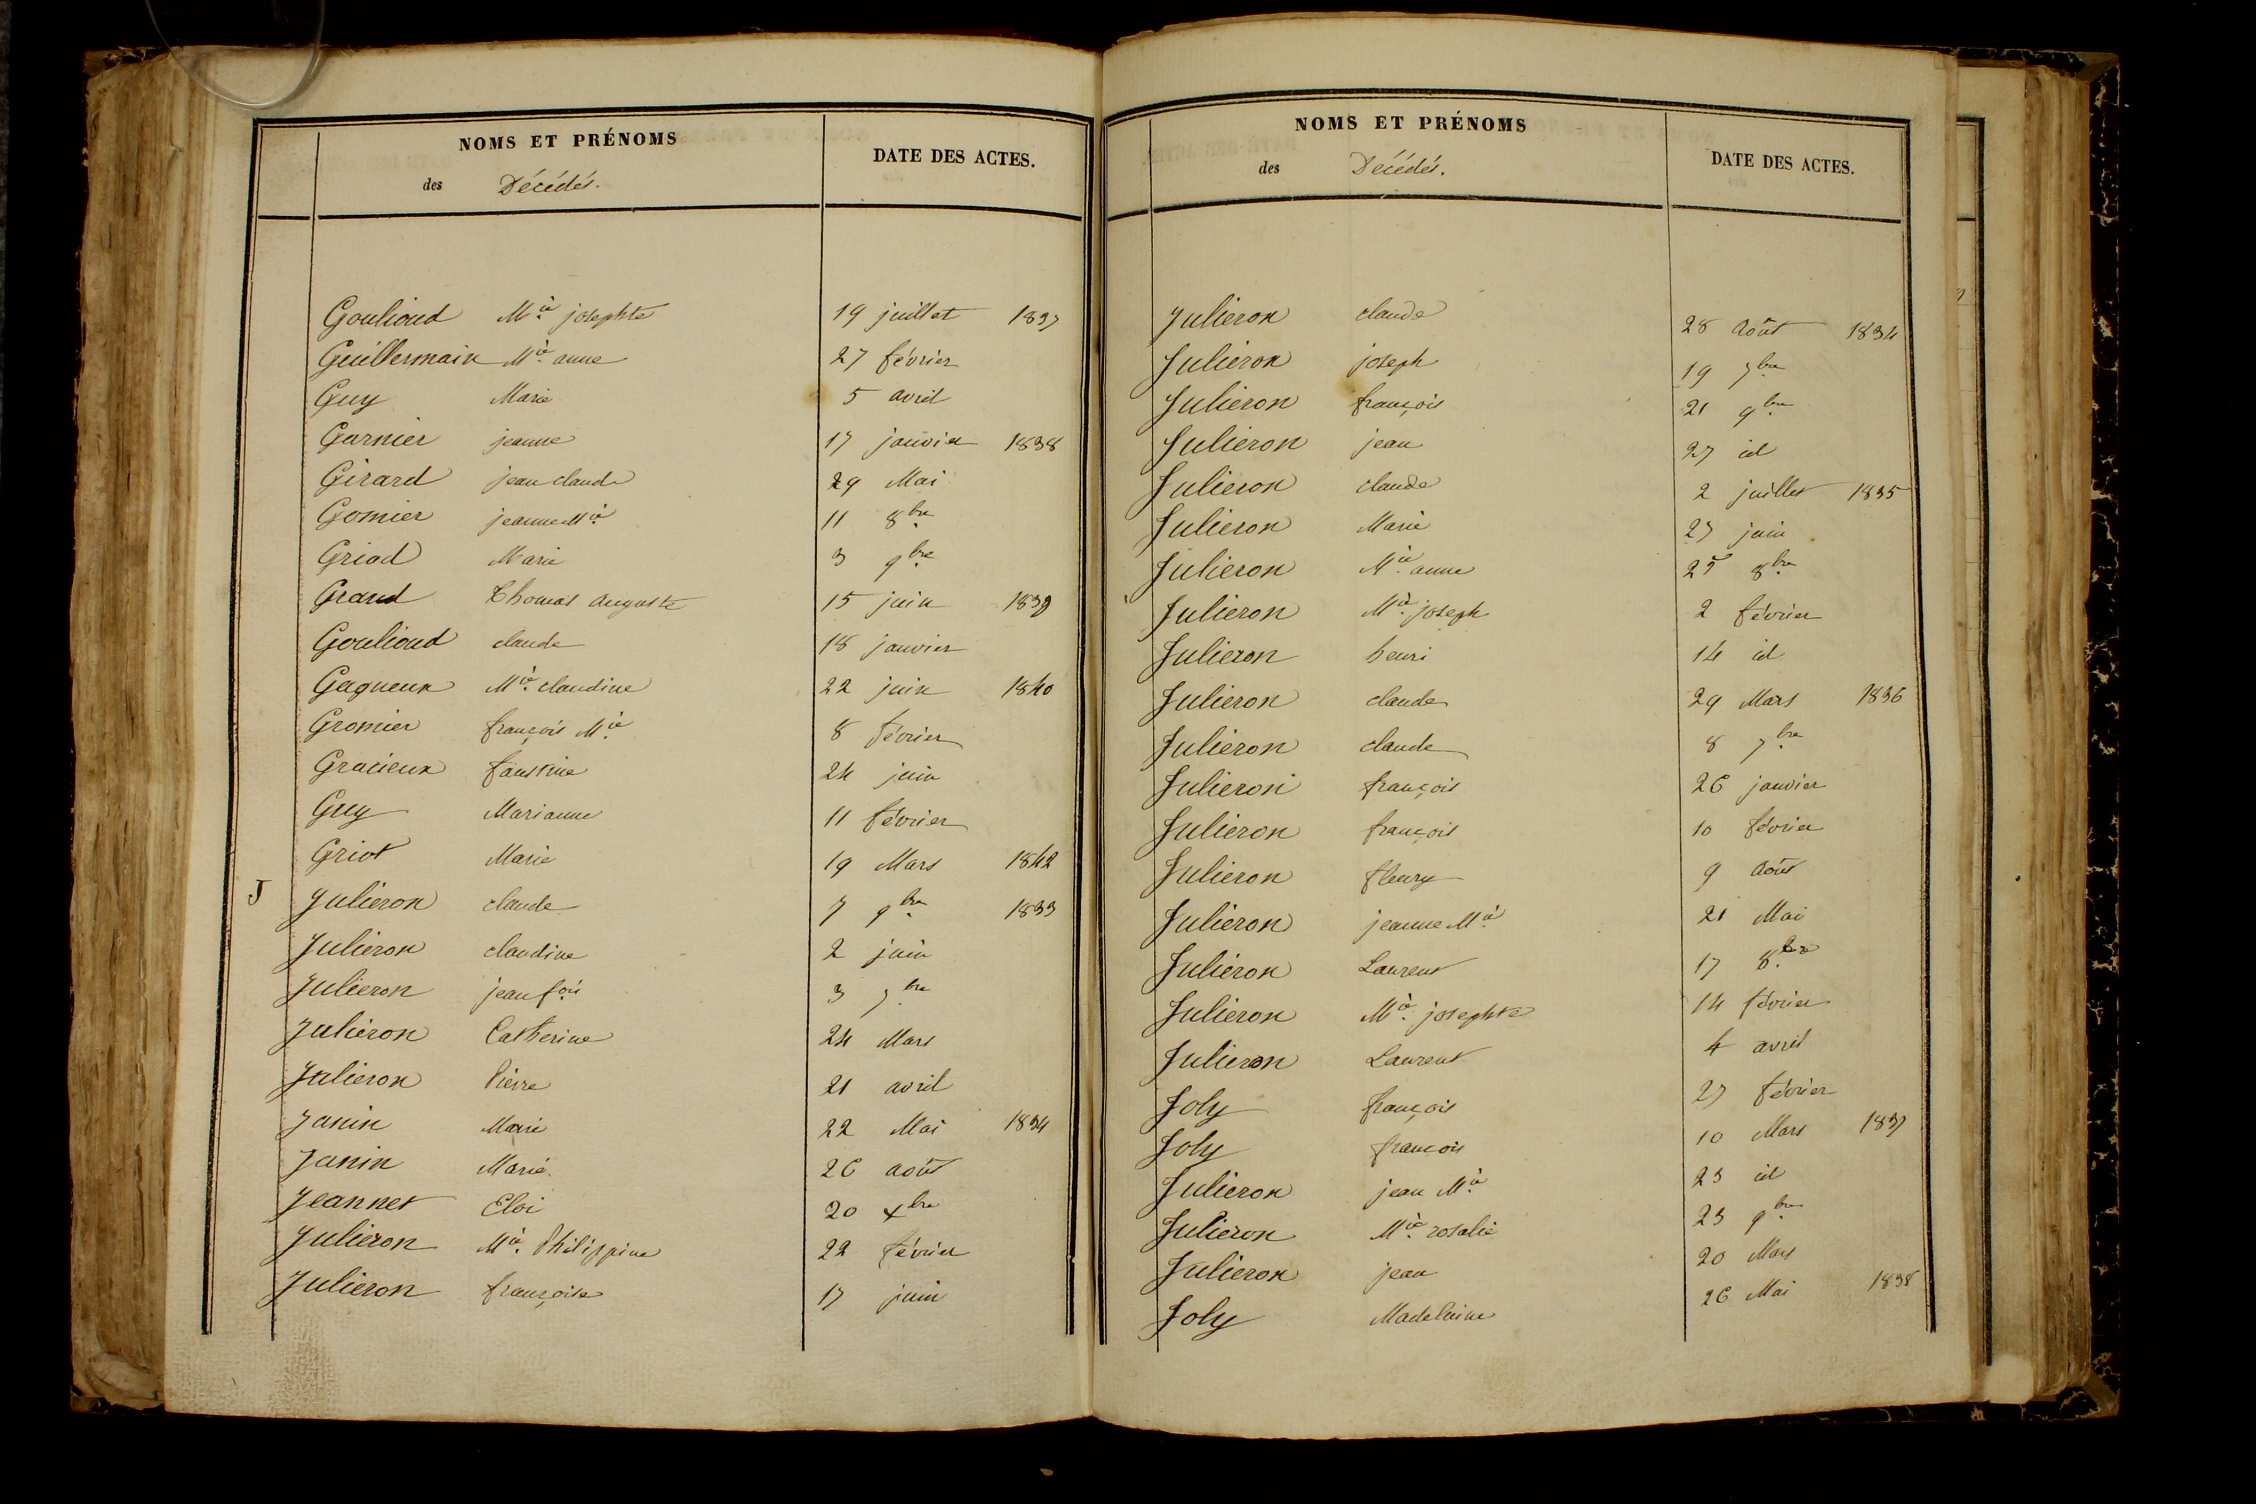 NOMS ET PRÉNOMS
des Décédés.
DATE DES ACTES.
Goulioud Mie josephte 19 juillet 1837
Guillermain Mie anne 27 février
Guy Marie 5 avril
Garnier jeanne 17 janvier 1838
Girard jean claude 29 Mai
Gomier jeanne Mie 11 8bre
Griod Marie 3 9bre
Grand Thomas auguste 15 juin 1839
Goulioud claude 18 janvier
Gagneux Mie claudine 22 juin 1840
Gromier françois Mie 8 février
Gracieux faustine 24 juin
Guy Marianne 11 février
Griot Marie 19 Mars 1842
J Julieron claude 7 9bre 1833
Julieron claudine 2 juin
Julieron jean fois 3 7bre
Julieron Catherine 24 Mars
Julieron Pierre 21 avril
Janin Marie 22 Mai 1834
Janin Marie 26 août
Jeannet Eloi 20 Xbre
Julieron Mie Philippine 22 février
Julieron françoise 17 juin
NOMS ET PRÉNOMS
des Décédés.
DATE DES ACTES.
Julieron claude 28 août 1834
Julieron joseph 19 7bre
Julieron françois 21 9bre
Julieron jean 27 id
Julieron claude 2 juillet 1835
Julieron Marie 27 juin
Julieron Mie anne 25 8bre
Julieron Mie joseph 2 février
Julieron henri 14 id
Julieron claude 29 Mars 1836
Julieron claude 8 7bre
Julieron françois 26 janvier
Julieron françois 10 février
Julieron fleury 9 août
Julieron jeanne Mie 21 Mai
Julieron Laurent 17 8bre
Julieron Mie josephte 14 février
Julieron Laurent 4 avril
Joly françois 27 février
Joly françois 10 Mars 1837
Julieron jean Mie 23 id
Julieron Mie rosalie 23 9bre
Julieron jean 20 Mars
Joly Madeleine 26 Mai 1838